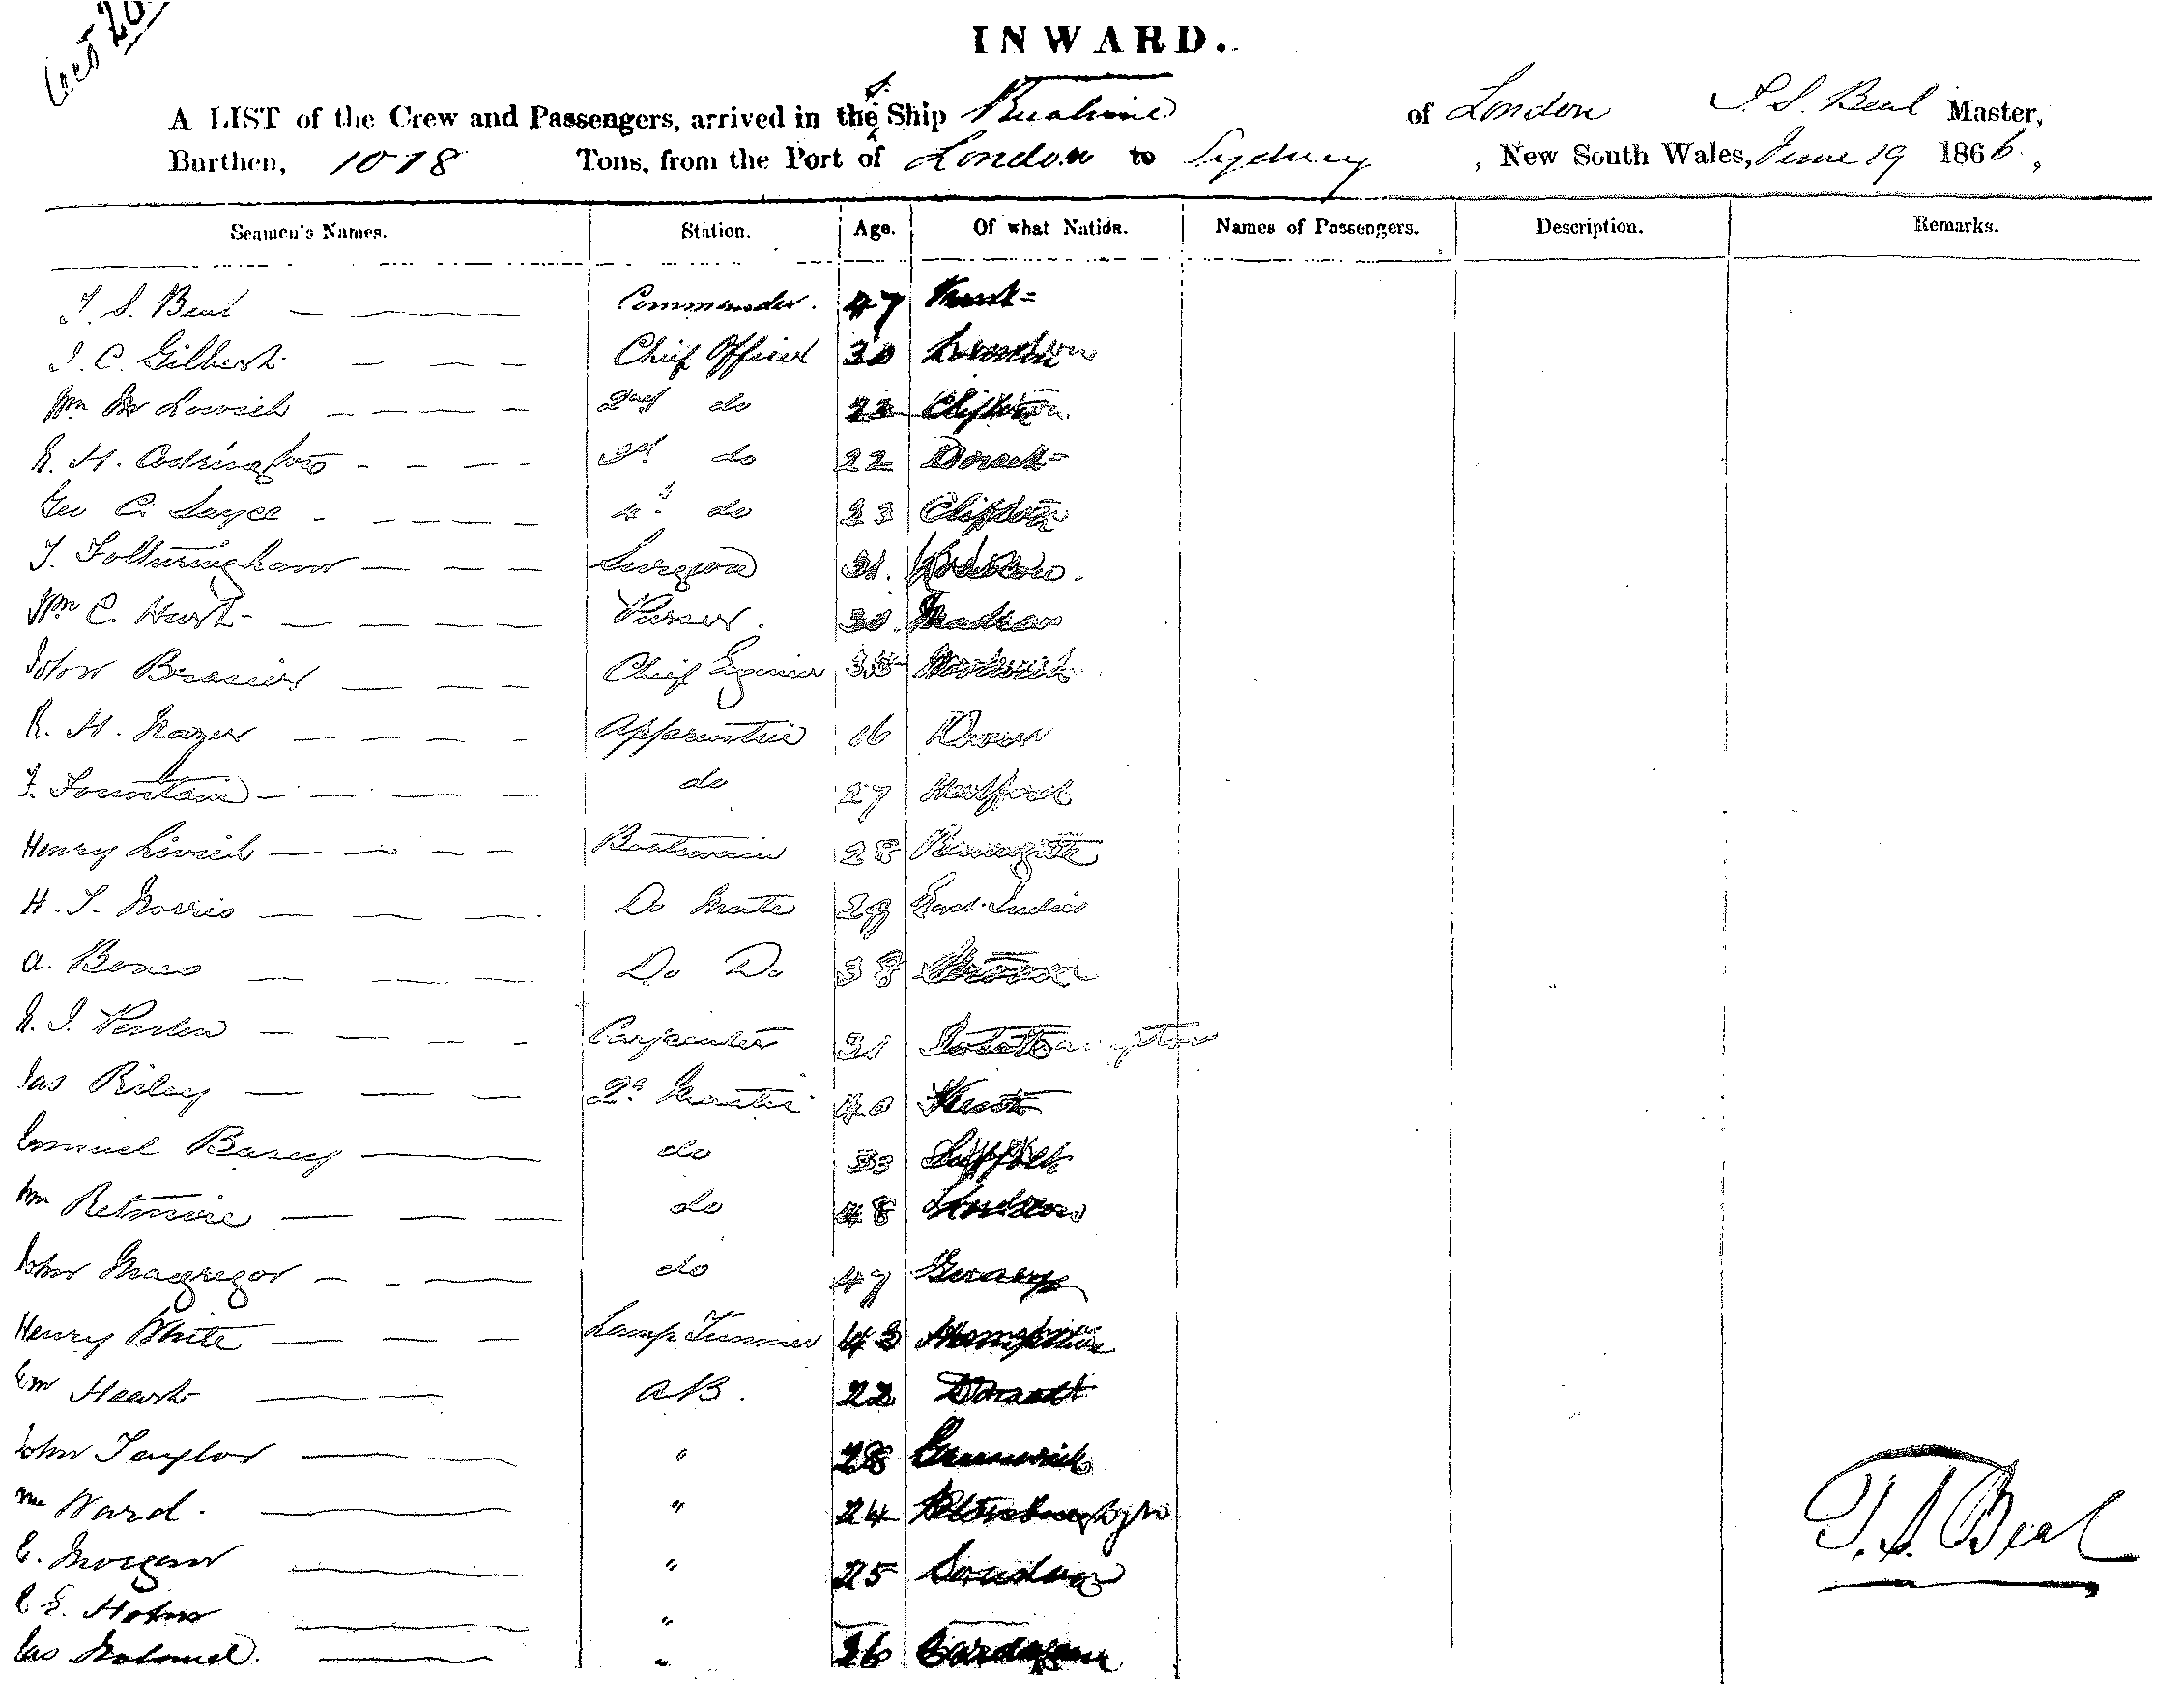 INWARD.
A LIST of the Crew and Passengers, arrived in the S. Ship Ruahine of London T. S. Beal Master,
Burthen, 1078 Tons, from the Port of London to Sydney, New South Wales, June 19 1866,
Seamen's Names. Station. Age. Of what Nation. Names of Passengers. Description. Remarks.
T. S. Beal Commander. 47 Kent
J. C. Gilbert Chief Officer 30 London
Wm 2nd do 23 Clifton
H. Codrington 3rd do 22 Dorset
Geo C. Sayce 4th do 23 Clifton
T. Fotheringham Surgeon 31.
Wm C. Hurst Purser. 30. Madras
John Brasier Chief Egineer 35 Woolwich
R. H. Apprentice 16 Devon
F. Fountain do 27 Hertford
Henry Boatswain 28 Ramsgate
H. T. Morris Do Mate 29 East Indies
A. Bones Do Do 38
Carpenter 31
Jas Riley 2d 40 Kent
Emuel Barey do 33 Suffolk
Wm Retmire do 48 London
John Macgregor do 47
Henry White Lamp Trimmer 43 Hampshire
Em Heart AB. 22 Dorset
John Taylor " 28 Greenwich
Wm Ward. " 24
E. Morgan " 25 London
C E. Holm "
Jas " 26 Cardigan
T. S. Beal